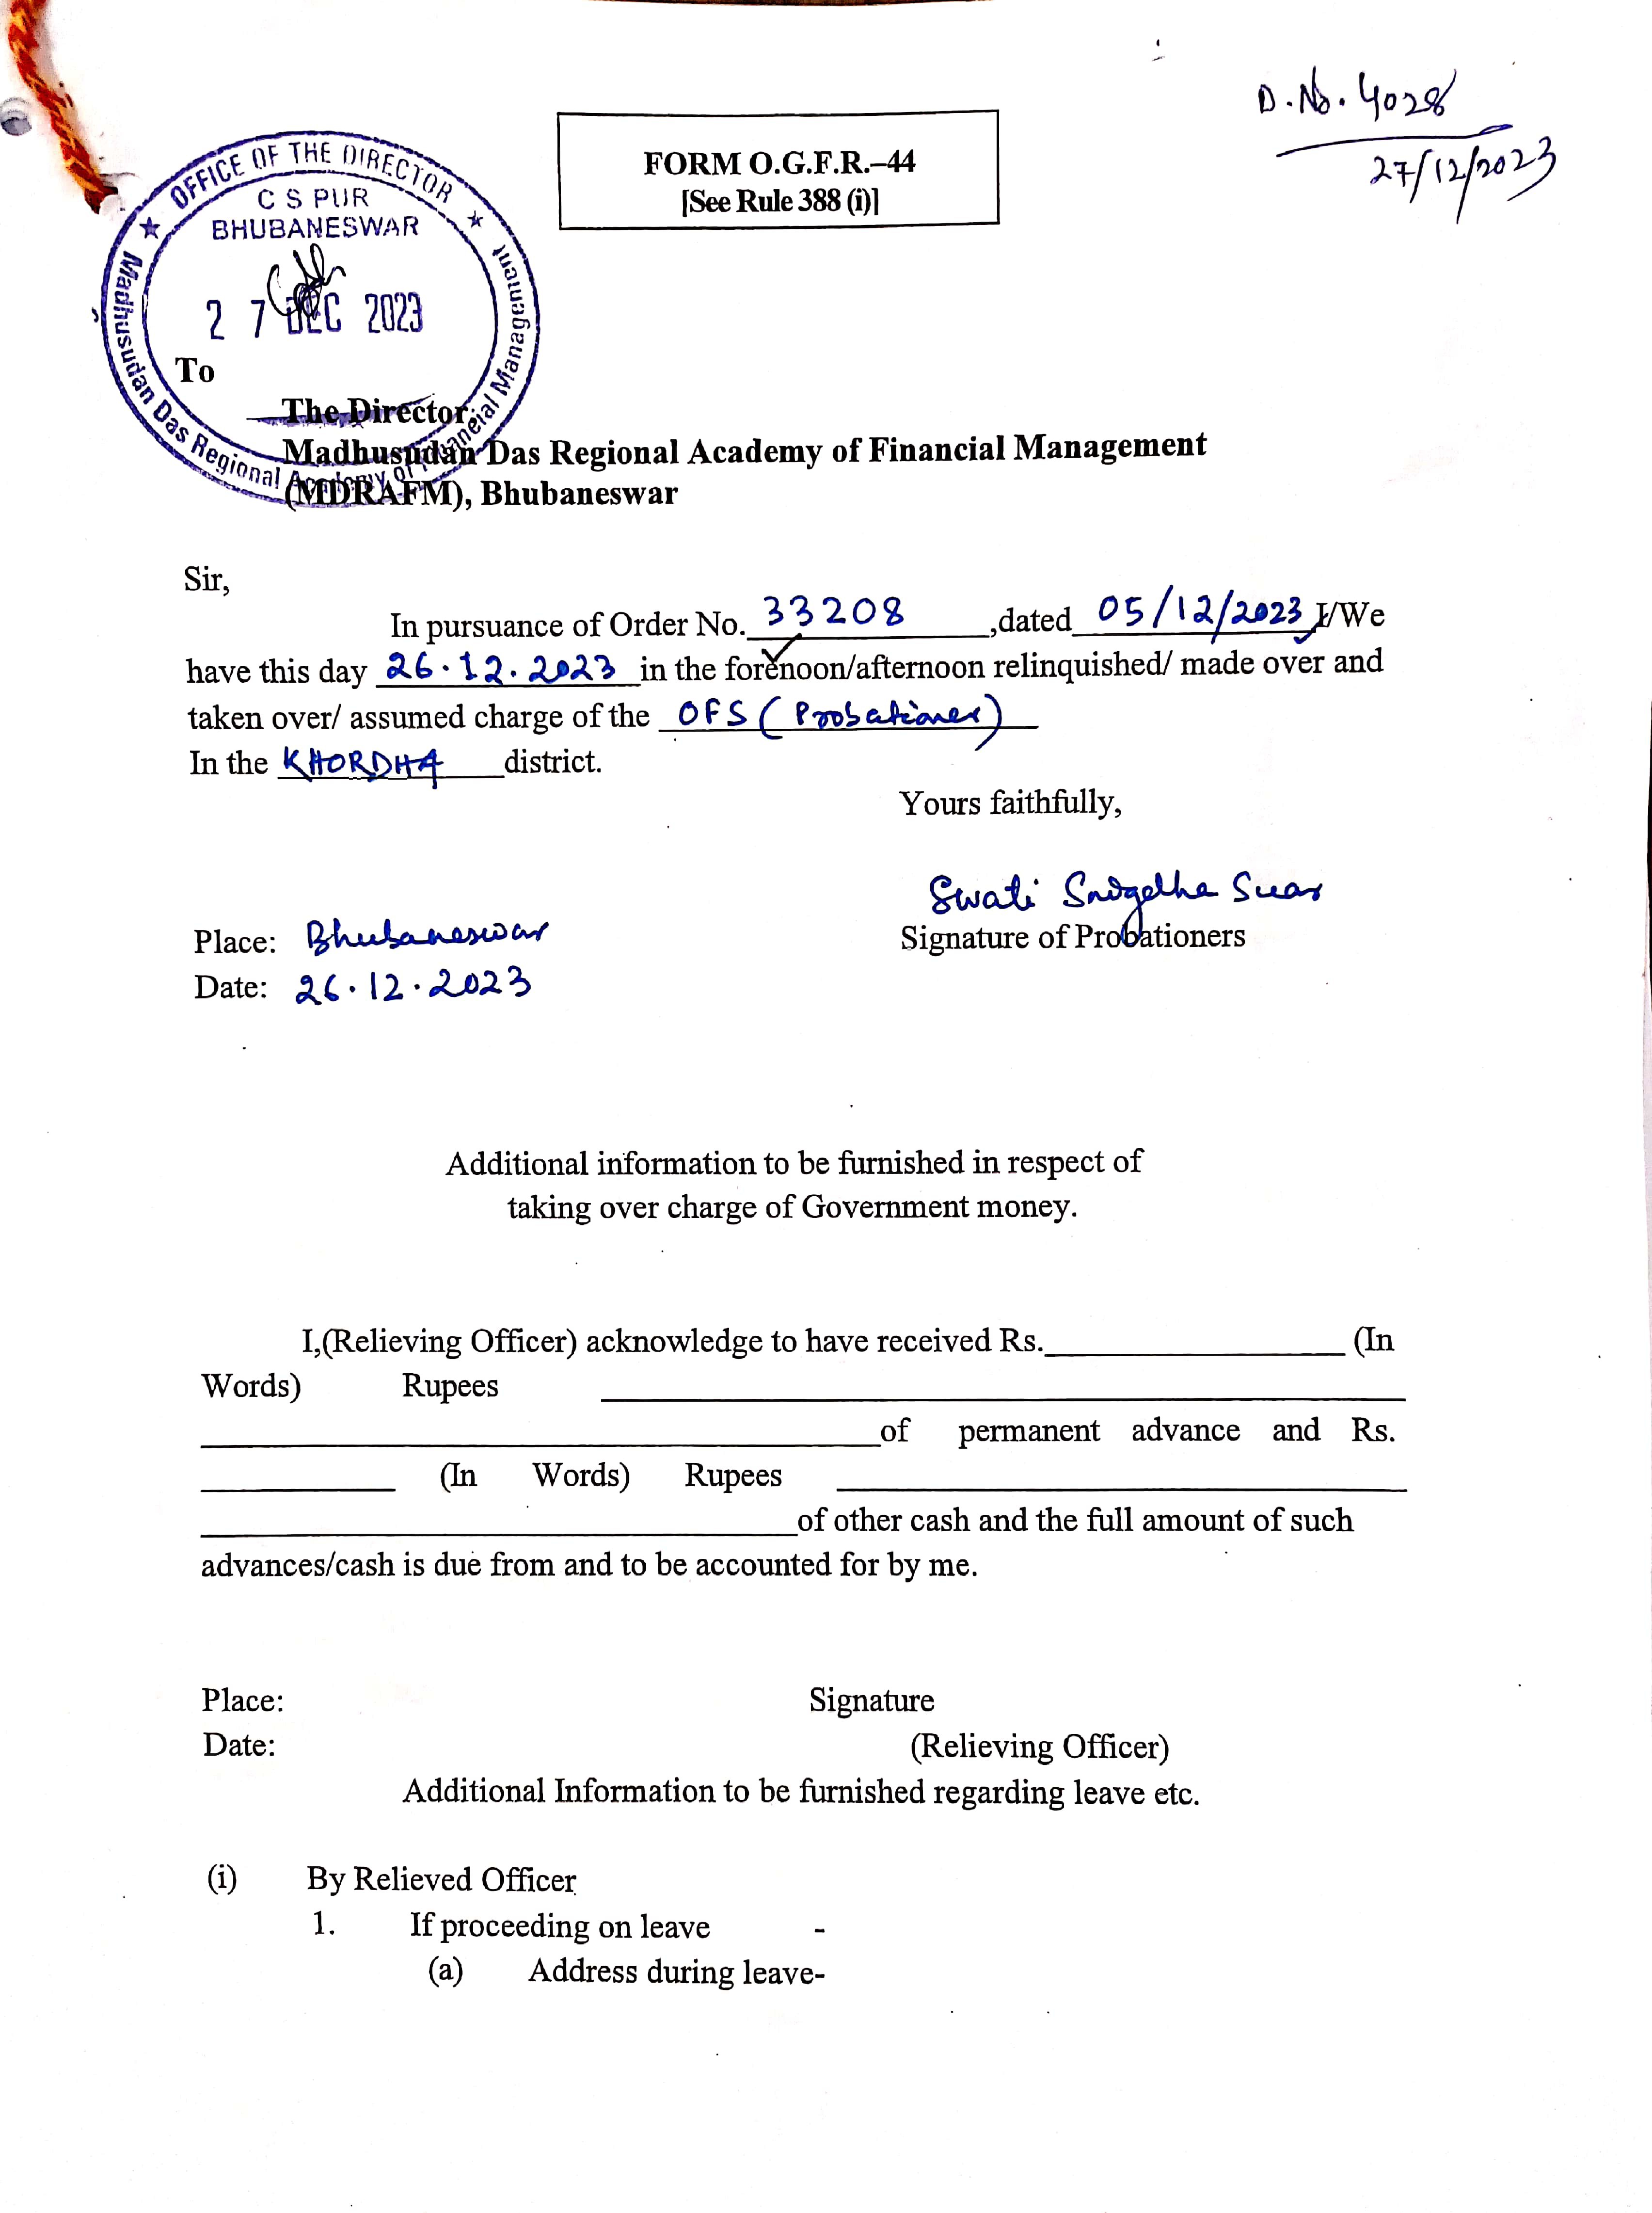 D.No. 4028
27/12/2023
FORM O.G.F.R.–44
[See Rule 388 (i)]
OFFICE OF THE DIRECTOR
C S PUR
BHUBANESWAR
27 DEC 2023
Madhusudan Das Regional Academy of Financial Management
To
The Director,
Madhusudan Das Regional Academy of Financial Management
(MDRAFM), Bhubaneswar
Sir,
In pursuance of Order No. 33208 ,dated 05/12/2023 I/We
have this day 26.12.2023 in the forenoon/afternoon relinquished/ made over and
taken over/ assumed charge of the OFS (Probationer)
In the KHORDHA district.
Yours faithfully,
Swati Snigdha Suar
Signature of Probationers
Place: Bhubaneswar
Date: 26.12.2023
Additional information to be furnished in respect of
taking over charge of Government money.
I,(Relieving Officer) acknowledge to have received Rs. (In
Words) Rupees
of permanent advance and Rs.
(In Words) Rupees
of other cash and the full amount of such
advances/cash is due from and to be accounted for by me.
Place: Signature
Date: (Relieving Officer)
Additional Information to be furnished regarding leave etc.
(i) By Relieved Officer
1. If proceeding on leave -
(a) Address during leave-